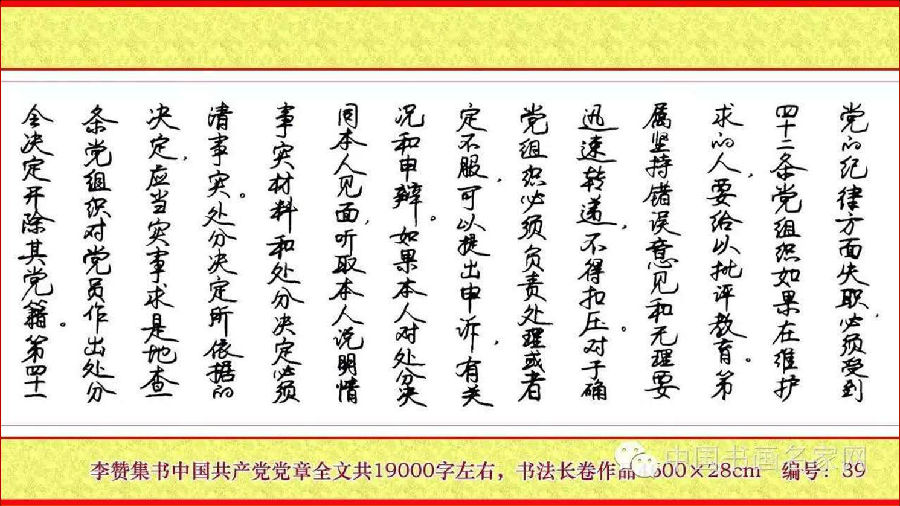 会决定开除其党籍。第四十一
条党组织对党员作出处分
决定，应当实事求是地查
清事实。处分决定所依据的
事实材料和处分决定必须
同本人见面，听取本人说明情
况和申辩。如果本人对处分决
定不服，可以提出申诉，有关
党组织必须负责处理或者
迅速转递，不得扣压。对于确
属坚持错误意见和无理要
求的人，要给以批评教育。第
四十二条党组织如果在维护
党的纪律方面失职，必须受到
李赞集书中国共产党党章全文共19000字左右，书法长卷作品 ×28cm 编号：39
中国书画名家网